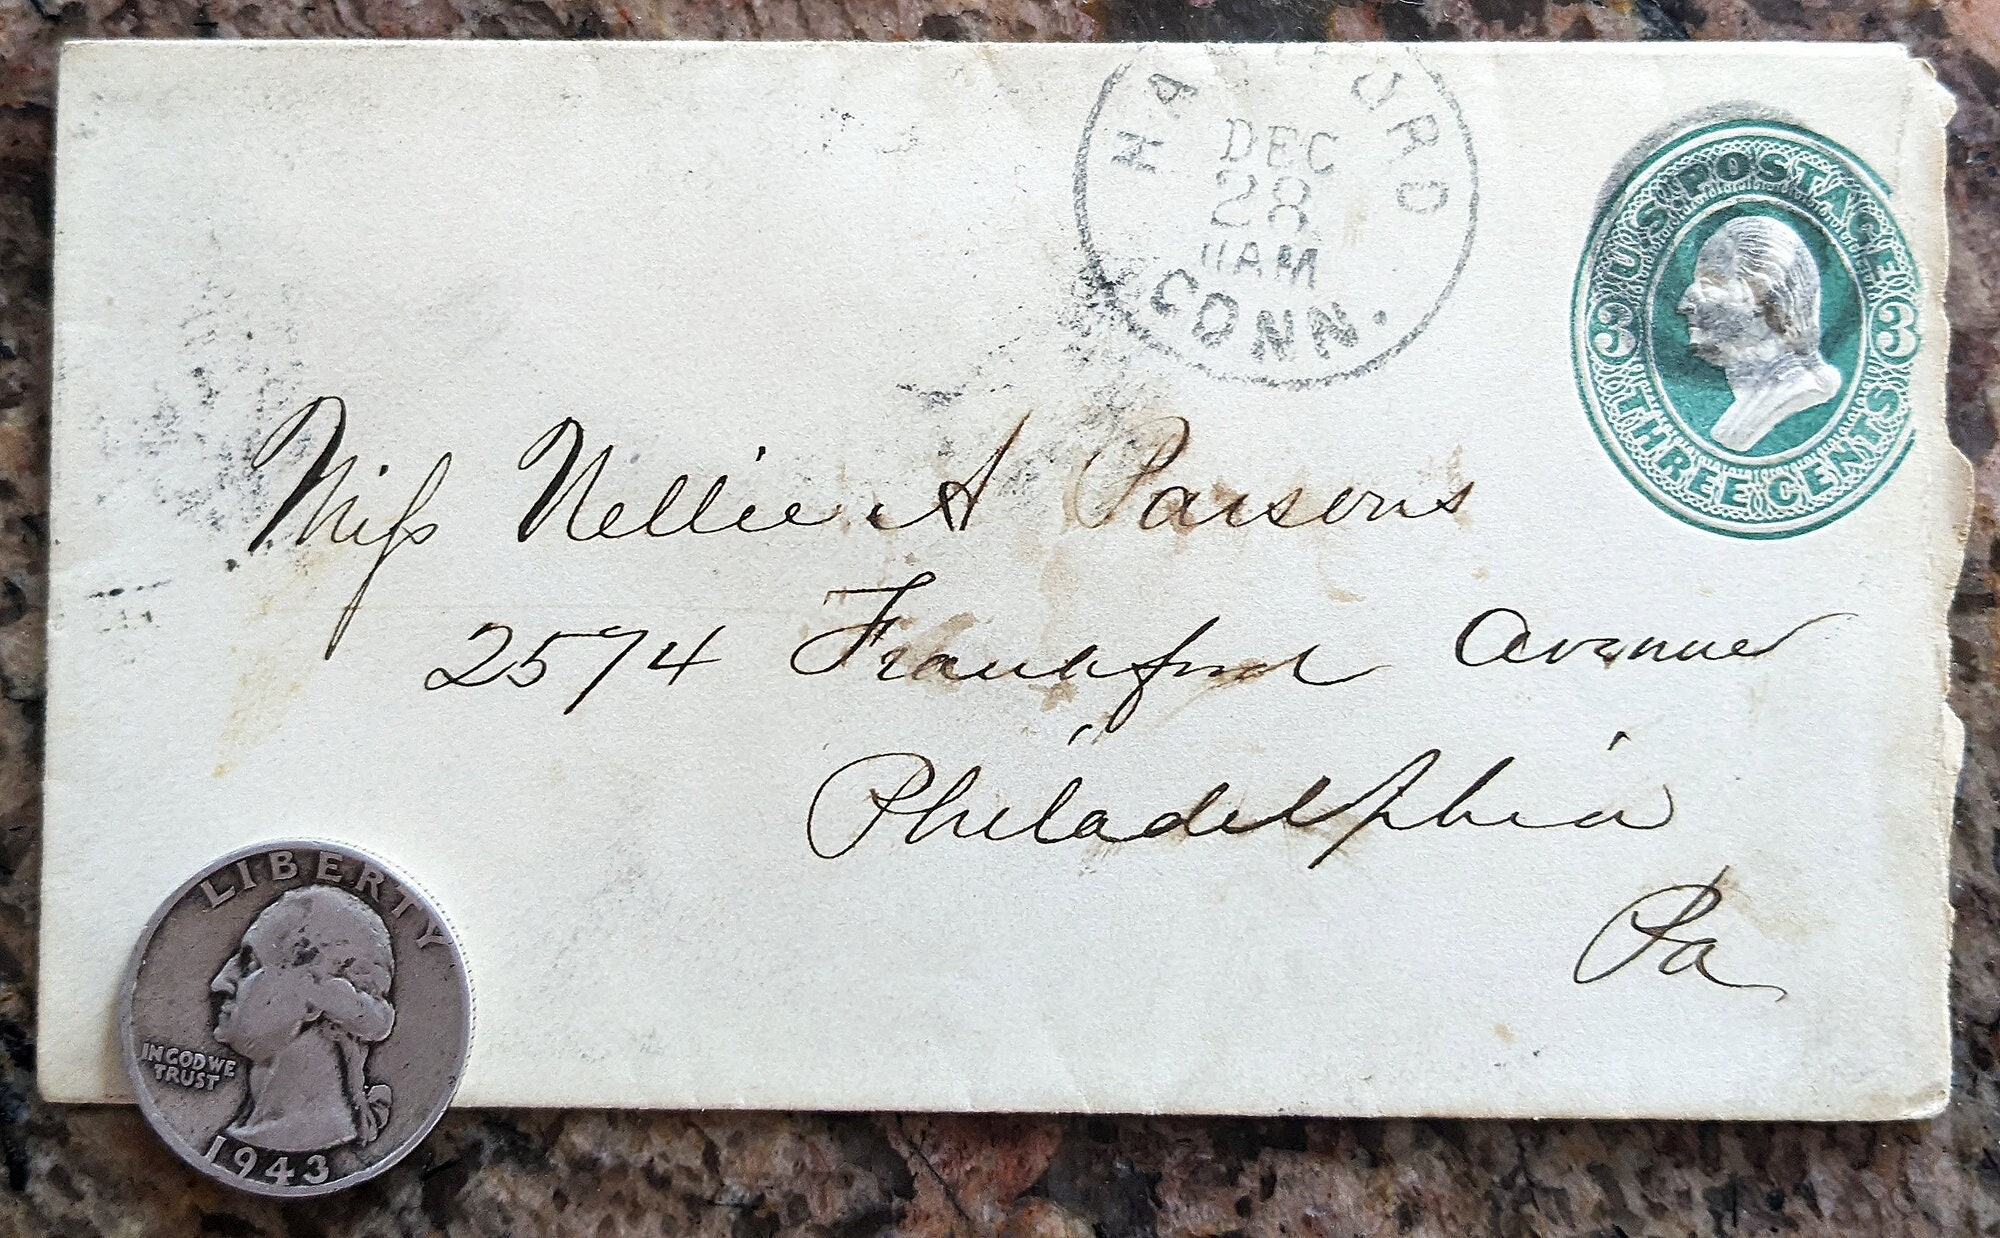 HA URD
DEC
28
11AM
CONN.
U.S. POSTAGE
3 3
THREE CENTS
Miss Nellie A Parsons
2574 Frankford Avenue
Philadelphia
Pa
LIBERTY
IN GOD WE
TRUST
1943